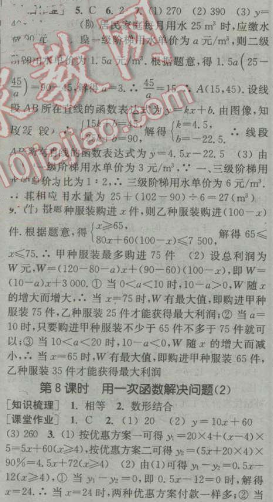 5. C 6. 2 (1) 270 (2) 390 (3) y=
月用水 25 m³ 时,应缴水
一级阶梯用水单价为 a 元/m³,则二级
单价为 1.5a 元/m³. 根据题意,得 1.5a(25-
a=3. ∴ 45/a=15. ∴ A(15,45). 设线
段AB所在直线的函数表达式为 y=kx+b. 由图像,知
解得 {k=4.5, b=-22.5. ∴ 线段
函数表达式为 y=4.5x-22.5 (3) 由
阶梯用水单价为 3 元/m³, ∵ 一、三级阶梯用
水单价为比为 1:2, ∴ 三级阶梯用水单价为 6 元/m³.
∴ 其相应用水量为 25+(102-90)÷6=27(m³)
9. (1) 设甲种服装购进 x 件,则乙种服装购进(100-x)
件. 根据题意,得 {x≥65, 80x+60(100-x)≤7 500, 解得 65≤
x≤75. ∴ 甲种服装最多购进 75 件 (2) 设总利润为
W 元,W=(120-80-a)x+(90-60)(100-x),即 W=
(10-a)x+3 000. ① 当 0<a<10 时,10-a>0,W 随 x
的增大而增大,∴ 当 x=75 时,W 有最大值,即购进甲种
服装 75 件,乙种服装 25 件才能获得最大利润;② 当 a=
10 时,只要购进甲种服装不少于 65 件不多于 75 件就可
以;③ 当 10<a<20 时,10-a<0,W 随 x 的增大而减
小,∴ 当 x=65 时,W 有最大值,即购进甲种服装 65 件,
乙种服装 35 件才能获得最大利润
第 8 课时 用一次函数解决问题(2)
[知识梳理] 1. 相等 2. 数形结合
[课堂作业] 1. C 2. (1) 20 (2) y=10x+60
(3) 260 3. (1) 按优惠方案一可得 y₁=20×4+(x-4)×
5=5x+60(x≥4),按优惠方案二可得 y₂=(5x+20×4)×
90%=4.5x+72(x≥4) (2) 由(1)可得 y₁-y₂=0.5x-
12(x≥4). ① 当 y₁-y₂=0,即 0.5x-12=0 时,解得
x=24. ∴ 当 x=24 时,两种优惠方案付款一样多;② 当